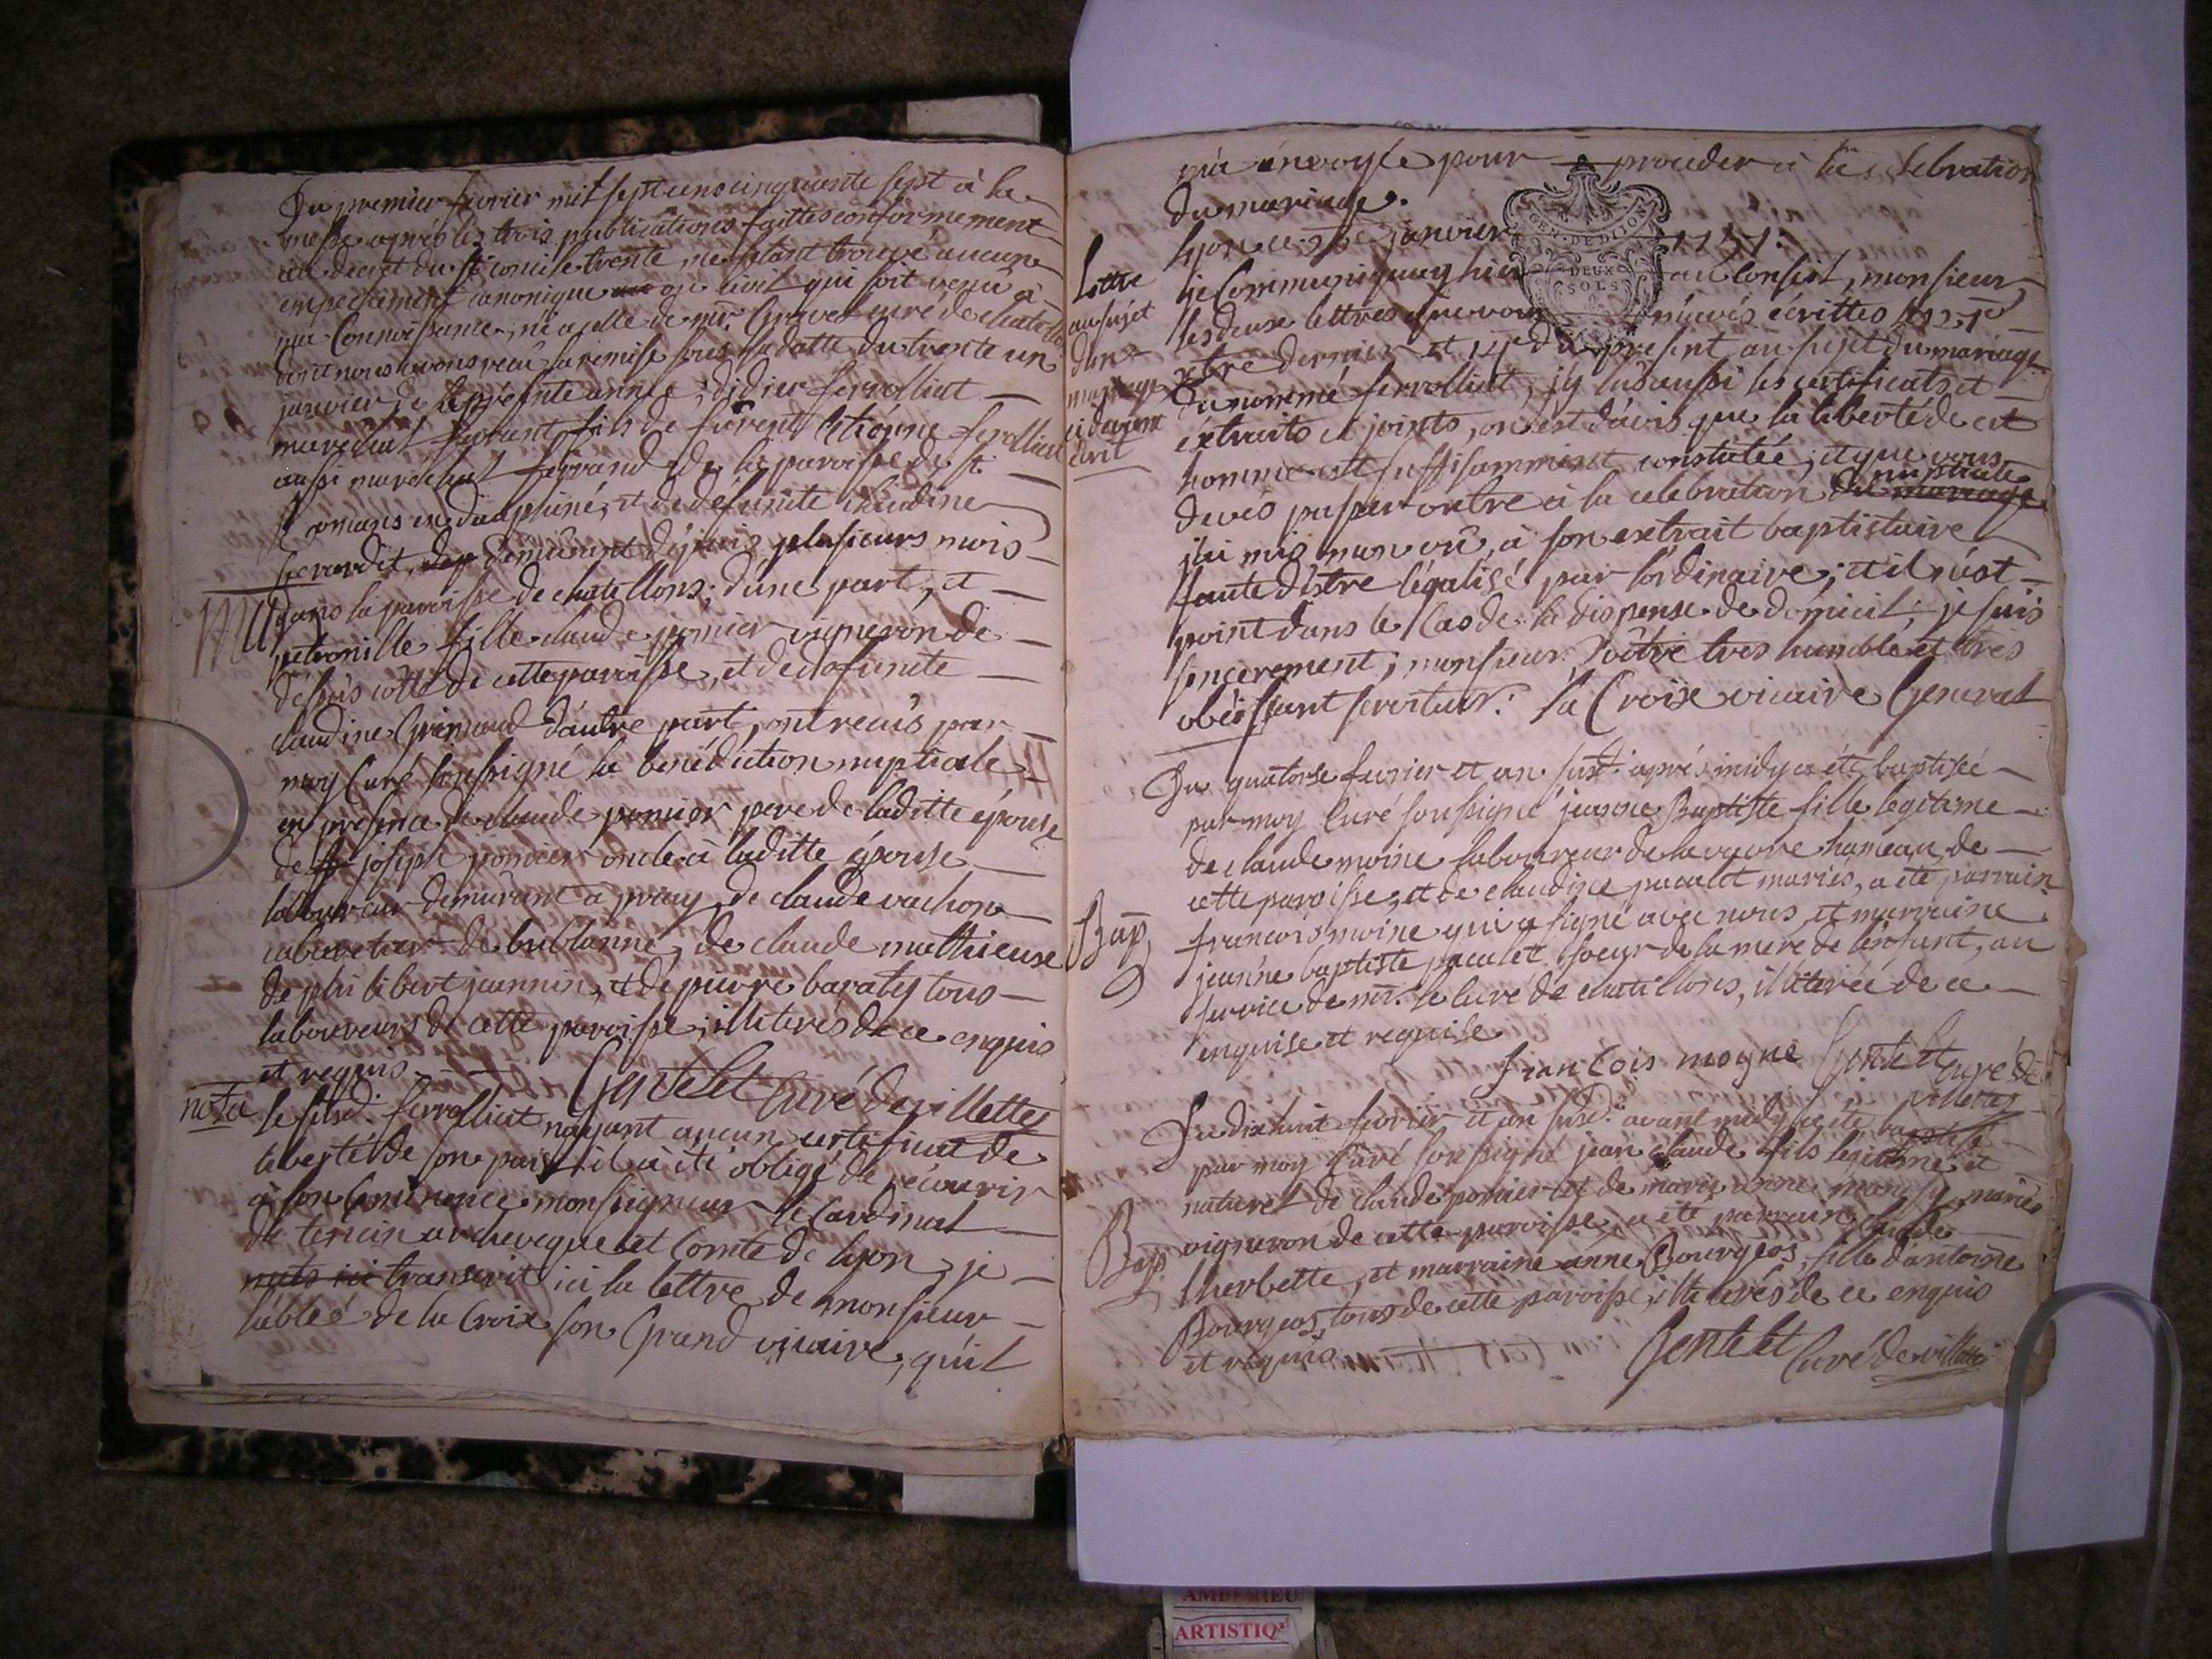 Du premier fevrier mil sept cens cinquante sept à la
messe après les trois publications faittes conformement
au decret du st concile trente ne sétant trouvé aucune
empechement canonique ou civil qui soit venu à
ma Connoissance, ni a celle de mr. Gravet curé de chatillons
dont nous avons recu la remise sous la datte du trente un
janvier de la présente année, didier ferrolliat
marechal ferrant fils de furent Etiénne ferolliat
aussi marechal ferrand de la paroisse de st
romans en dauphiné, et de défunte claudine
Gerardit, demeurant depuis plusieurs mois
dans la paroisse de chatillons; d'une part, et
petronille fille claude pomier vigneron de
dessus côte de cette paroisse, et de defunte
claudine Grimaud d'autre part, ont recus par
moy Curé soussigné la benédiction nuptiale
en presence de claude pomier pere de laditte épouse
de joseph pomier oncle à laditte épouse
laboureur demeurant a pray, de claude vachon
cabaretier de bublanne, de claude mathieux
de philibert jeannin, et de pierre baraty tous
laboureurs de cette paroisse, illiterés de ce enquis
et requis
Gentelet Curé de villettes
Ma
nota le susd. ferrolliat nayant aucun certificat de
liberté de son pays il a été obligé de récourir
à son Eminence monseigneur le Cardinal
de tencin archeveque et Comte de lyon, je
mets ici transcrit ici la lettre de monsieur
labbé de la Croix son Grand vicaire, qu'il
m'a énvoyée pour proceder à la celebration
du mariage.
lyon ce janvier 1757.
Lettre
au sujet
d'un
mariage
ci devant
écrit
je Communiquay hier au Conseil, monsieur
les deux lettres que vous m'avés écrittes les 25e
xbre dernier et 14e du présent au sujet du mariage
du nommé ferrolliat, j'y lus aussi les certificats et
éxtraits ci joints, on est d'avis que la liberté de cet
homme est suffisamment constatée, et que vous
devés passer outre à la celebration du mariage nuptiale
j'ai mis mon vû, à son extrait baptistaire
faute d'être légalisé par l'ordinaire; et il n'est
point dans le Cas de la dispense de domicil; je suis
sincerement; monsieur Vôtre tres humble et tres
obeissant serviteur: la Croix vicaire General
Du quatorse fevrier et an susd. après midy a été baptisée
par moy Curé soussigné jeanne Baptiste fille legitime
de claude moine laboureur de la vavre hameau de
cette paroisse, et de claudine pacalet mariés, a été parrain
francois moine qui a signé avec nous, et marraine
jeanne baptiste pacalet soeur de la mere de l'enfant, au
service de mr. le Curé de chatillons, illiterée de ce
enquise et requise
Bap
francois moyne Gentelet Curé de
villettes
Du dix huit fevrier et an susd. avant midy a été baptisé
par moy Curé soussigné jean claude fils legitime et
naturel de claude pomier et de marie anne mariés
vigneron de cette paroisse, a été parrain claude
lherbette, et marraine anne Bourgeos, fille d'antoine
Bourgeos, tous de cette paroisse, illiterés de ce enquis
et requis
Bap
Gentelet Curé de villettes
GEN. DE DIJON
DEUX
SOLS
AMBERIEU
ARTISTIQ